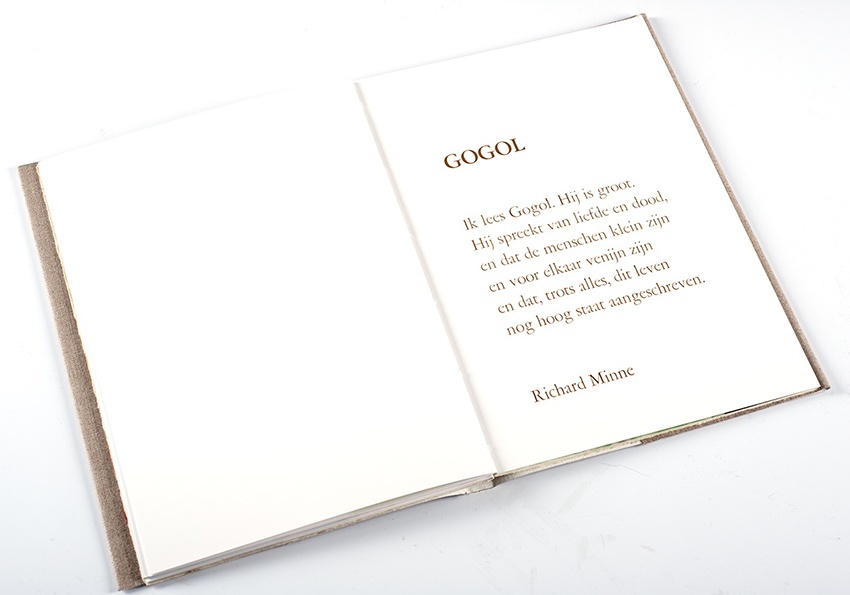 GOGOL
Ik lees Gogol. Hij is groot.
Hij spreekt van liefde en dood,
en dat de menschen klein zijn
en voor elkaar venijn zijn
en dat, trots alles, dit leven
nog hoog staat aangeschreven.
Richard Minne